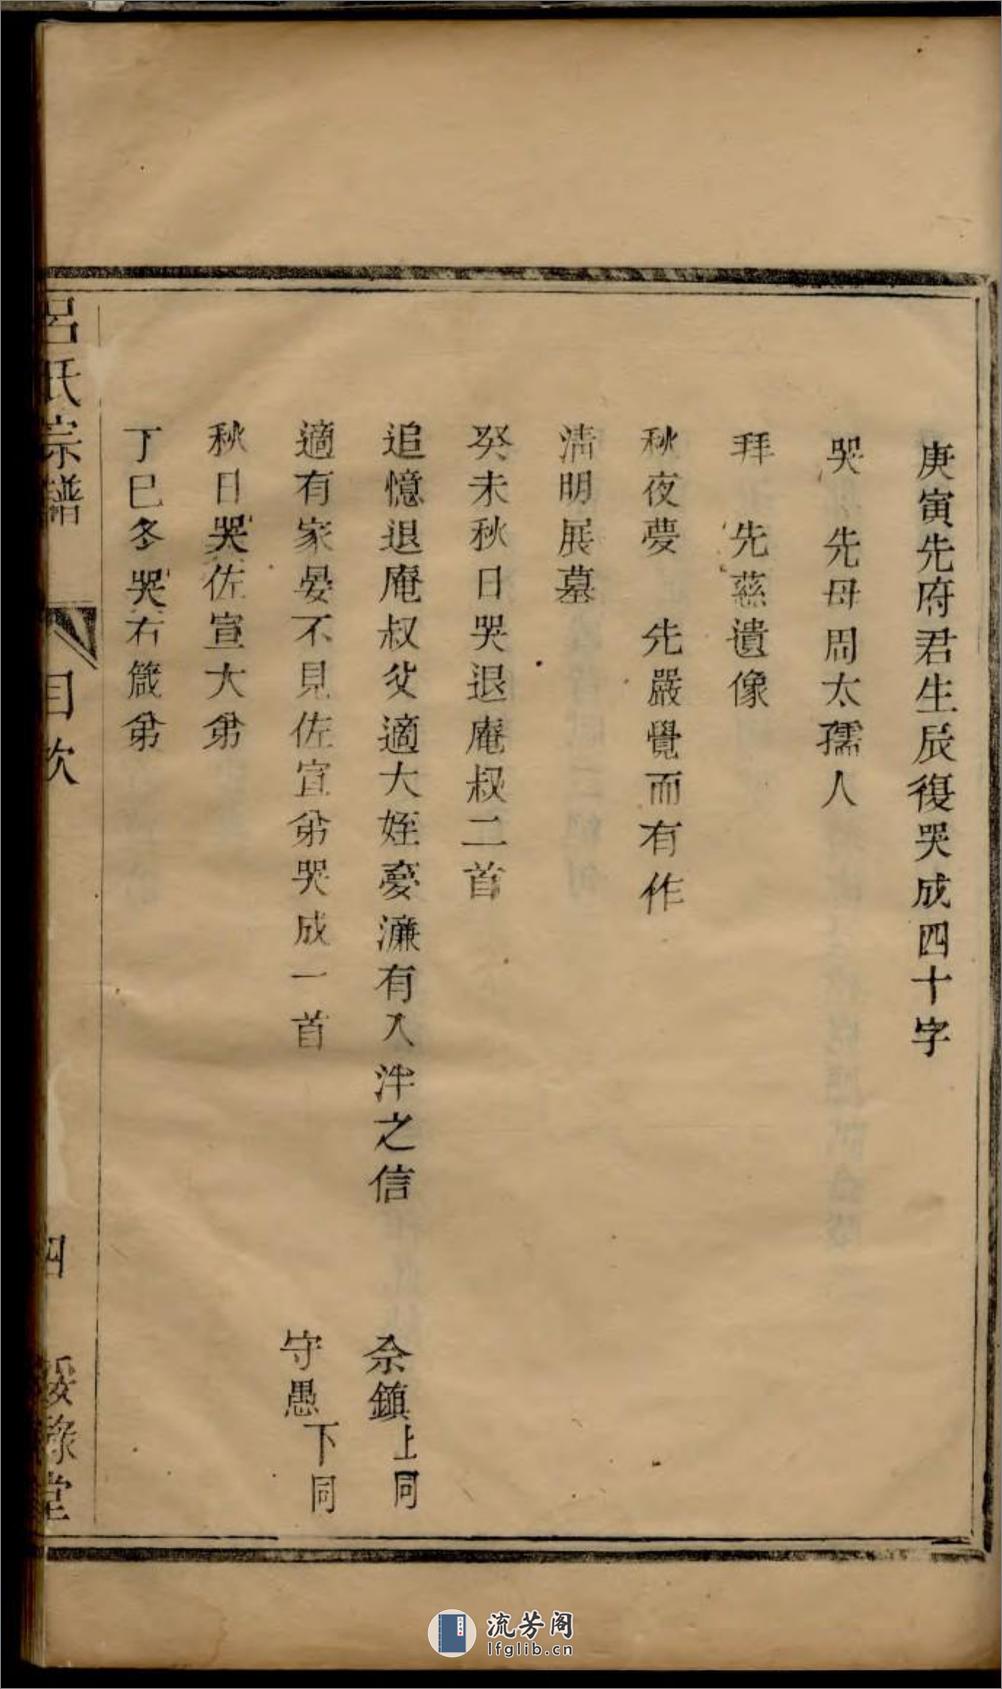 庚寅先府君生辰復哭成四十字
哭　先母周太孺人
拜　先慈遺像
秋夜夢　先嚴覺而有作
清明展墓
癸未秋日哭退庵叔二首
追憶退庵叔父適大姪蔓濂有入泮之信　佘鎮上同
適有家晏不見佐宣弟哭成一首　守愚下同
秋日哭佐宣大弟
丁巳冬哭右箴弟
呂氏宗譜　目次　四　綏祿堂
流芳阁
lfglib.cn